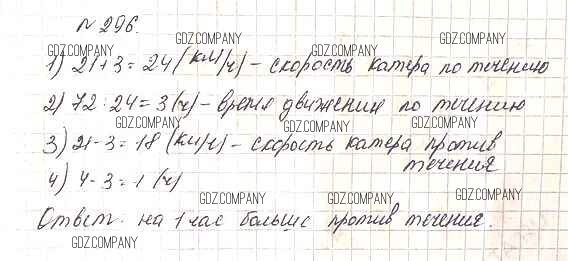 № 296.
GDZ.COMPANY GDZ.COMPANY GDZ.COMPANY
1) 21+3=24 (км/ч) - скорость катера по течению
GDZ.COMPANY GDZ.COMPANY GDZ.COMPANY
2) 72:24=3 (ч) - время движения по течению
GDZ.COMPANY GDZ.COMPANY GDZ.COMPANY
3) 21-3=18 (км/ч) - скорость катера против
течения
4) 4-3=1 (ч)
GDZ.COMPANY GDZ.COMPANY GDZ.COMPANY
Ответ. на 1 час больше против течения.
GDZ.COMPANY